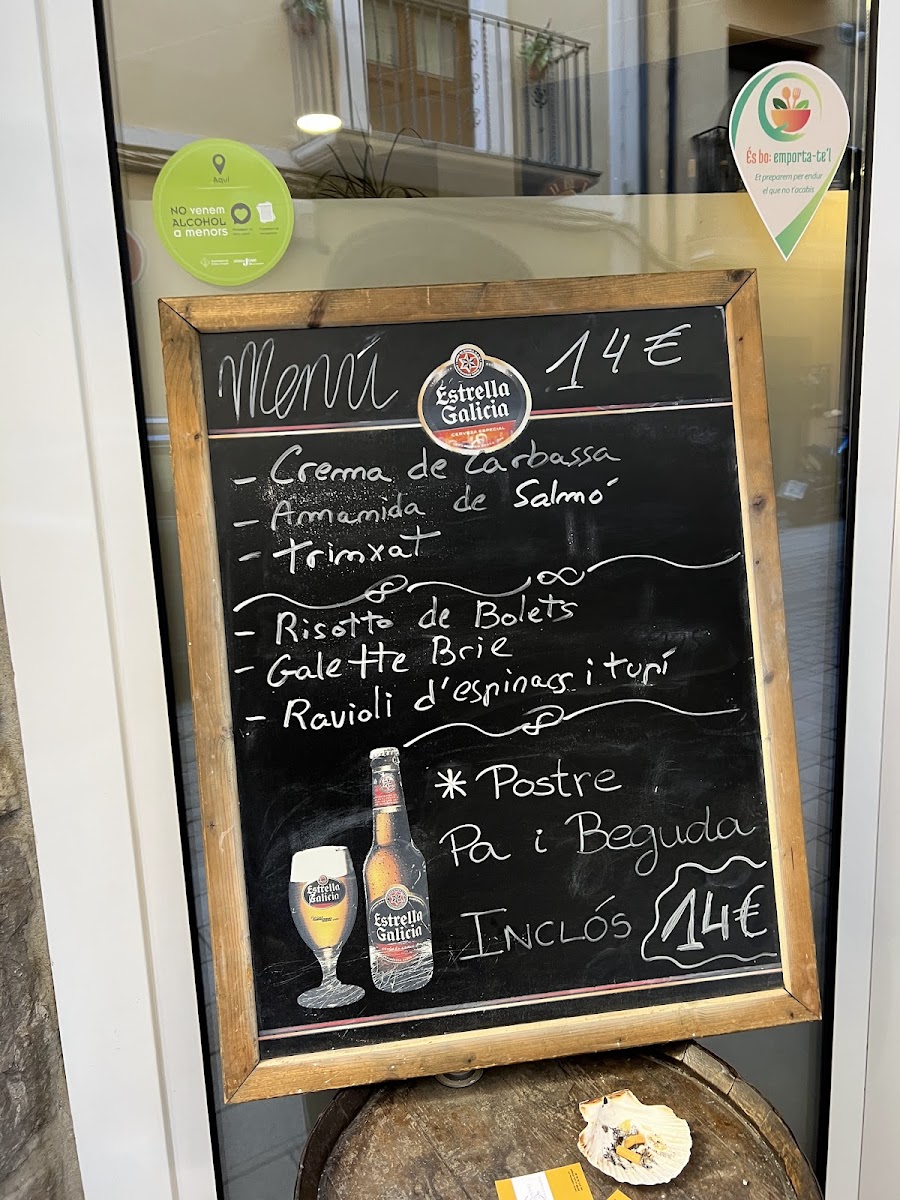 Aquí
NO venem
ALCOHOL
a menors
És bo: emporta-te'l
Et preparem per endur
el que no t'acabis
Menú
14€
Estrella
Galicia
CERVEZA ESPECIAL
- Crema de Carbassa
- Amamida de Salmó
- trinxat
- Risotto de Bolets
- Galette Brie
- Ravioli d'espinacs i tupí
* Postre
Pa i Beguda
Inclós 14€
Estrella
Galicia
Estrella
Galicia